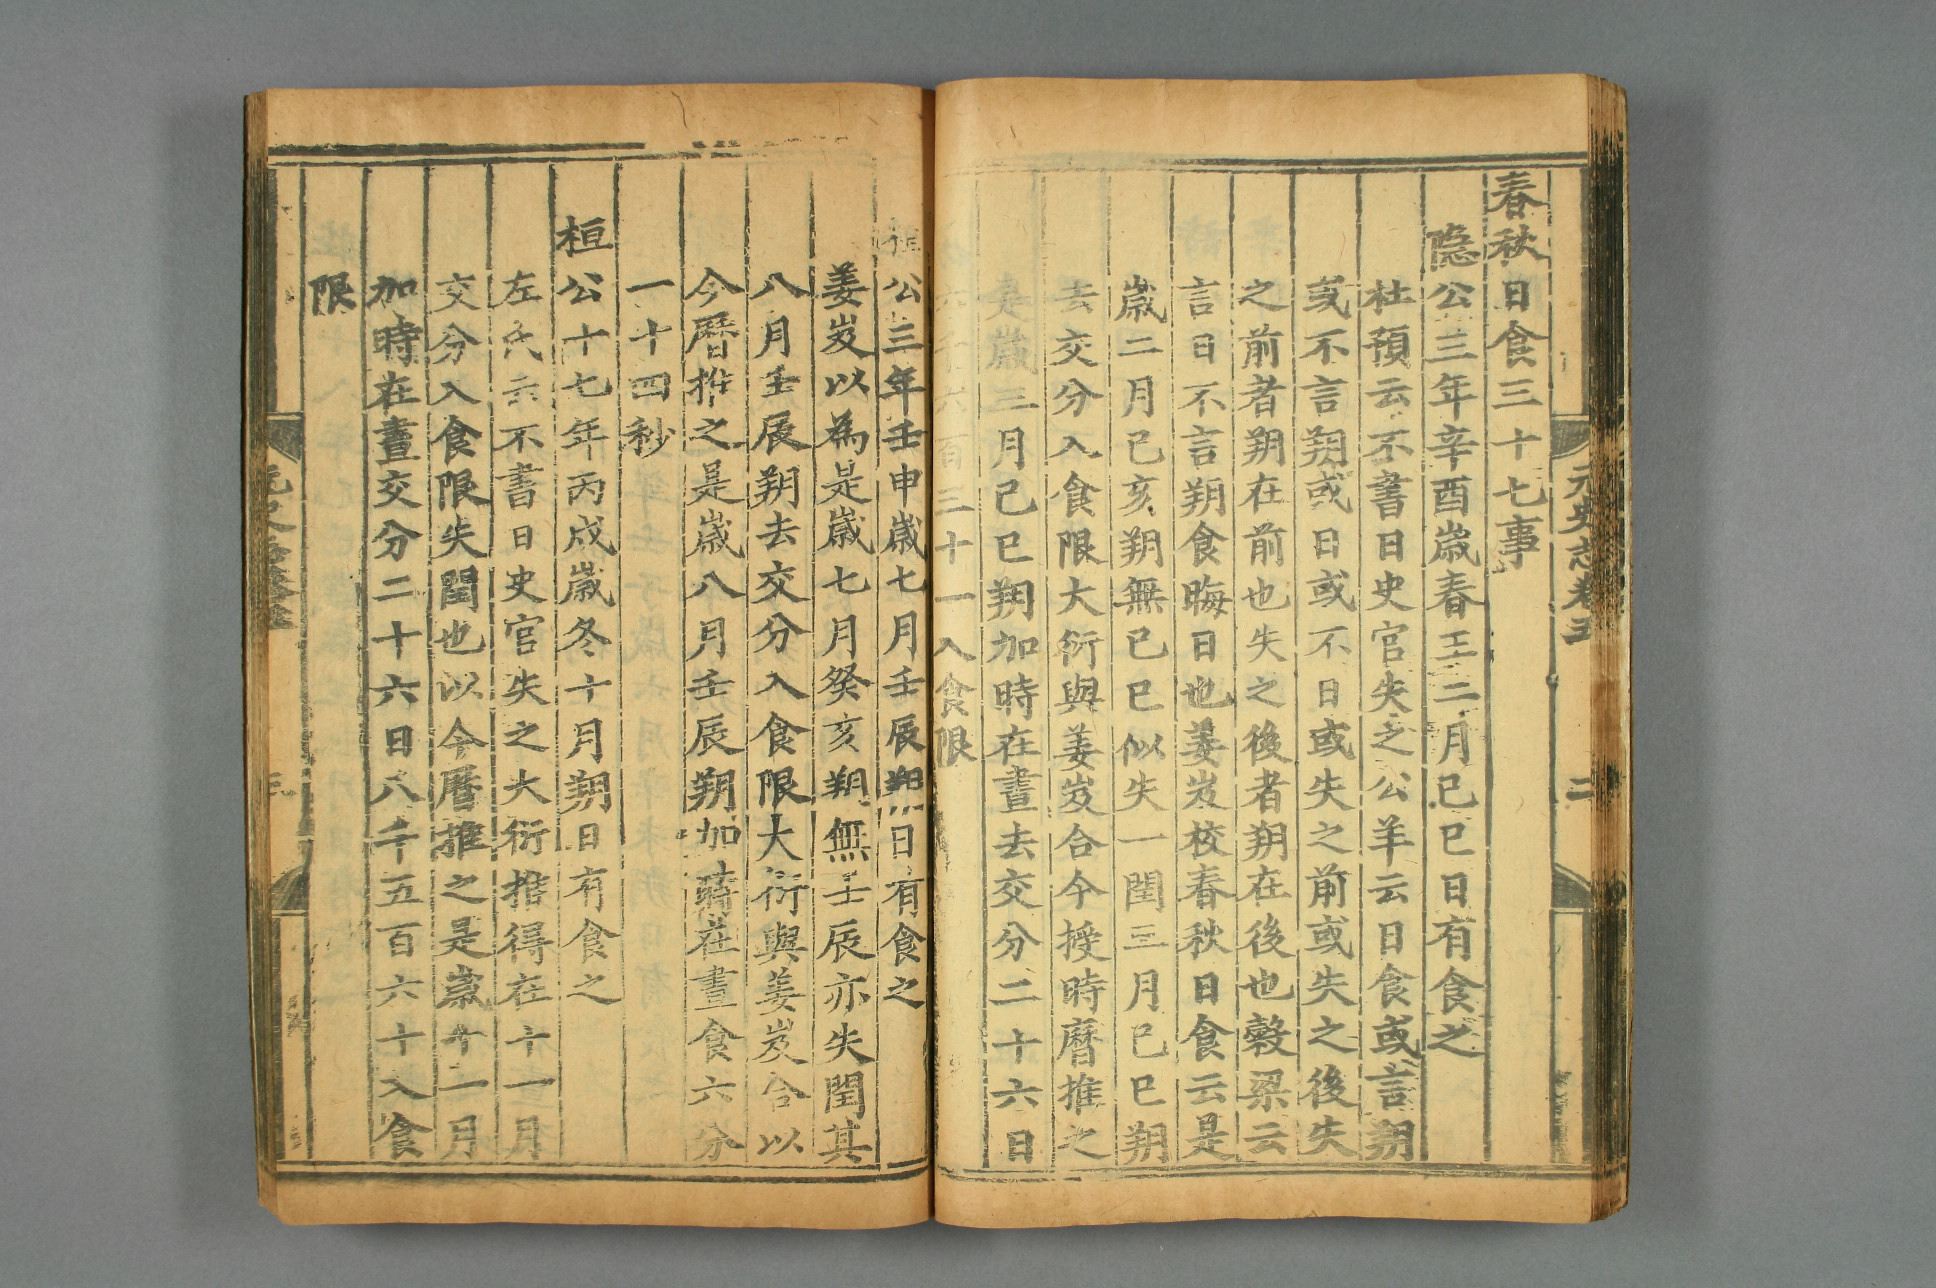 元史志卷五
二
春秋日食三十七事
隱公三年辛酉歲春王二月己巳日有食之
杜預云不書日史官失之公羊云日食或言朔
或不言朔或日或不日或失之前或失之後失
之前者朔在前也失之後者朔在後也穀梁云
言日不言朔食晦日也姜岌校春秋日食云是
歲二月己亥朔無己巳似失一閏三月己巳朔
去交分入食限大衍與姜岌合今授時曆推之
是歲三月己巳朔加時在晝去交分二十六日
六千六百三十一入食限
桓公三年壬申歲七月壬辰朔日有食之
姜岌以為是歲七月癸亥朔無壬辰亦失閏其
八月壬辰朔去交分入食限大衍與姜岌合以
今曆推之是歲八月壬辰朔加時在晝食六分
一十四秒
桓公十七年丙戌歲冬十月朔日有食之
左氏云不書日史官失之大衍推得在十一月
交分入食限失閏也以今曆推之是歲十一月
加時在晝交分二十六日八千五百六十入食
限